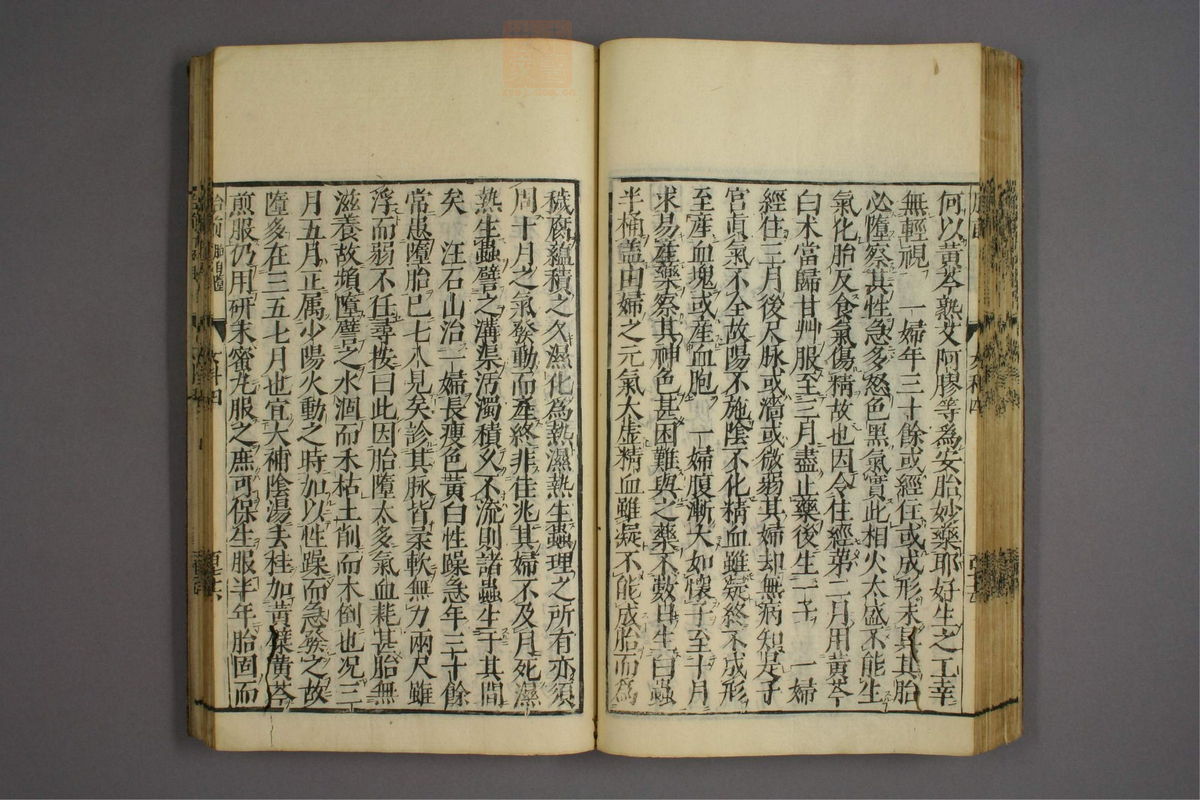 何以黃芩熟艾阿膠等為安胎妙藥耶好生之工幸
無輕視　一婦年三十餘或經住或成形未具其胎
必墮察其性急多怒色黑氣實此相火太盛不能生
氣化胎反食氣傷精故也因令住經第二月用黃芩
白朮當歸甘艸服至三月盡止藥後生一子　一婦
經住三月後尺脉或濇或微弱其婦却無病知是子
宮真氣不全故陽不施陰不化精血雖凝終不成形
至產血塊或產血胞　一婦腹漸大如懷子至十月
求易產藥察其神色甚困難與之藥不數日生白蟲
半桶盖由婦之元氣大虛精血雖凝不能成胎而為
穢腐蘊積之久濕化為熱濕熱生蟲理之所有亦須
周十月之氣發動而產終非佳兆其婦不及月死濕
熱生蟲譬之溝渠汚濁積久不流則諸蟲生于其間
矣　汪石山治一婦長瘦色黃白性躁急年三十餘
常患墮胎已七八見矣診其脉皆柔軟無力兩尺雖
浮而弱不任尋按曰此因胎墮太多氣血耗甚胎無
滋養故頻墮譬之水涸而禾枯土削而木倒也况三
月五月正属少陽火動之時加以性躁而急發之故
墮多在三五七月也宜大補陰湯去桂加黃蘗黃芩
煎服仍用研末蜜丸服之庶可保生服半年胎固而
女科四